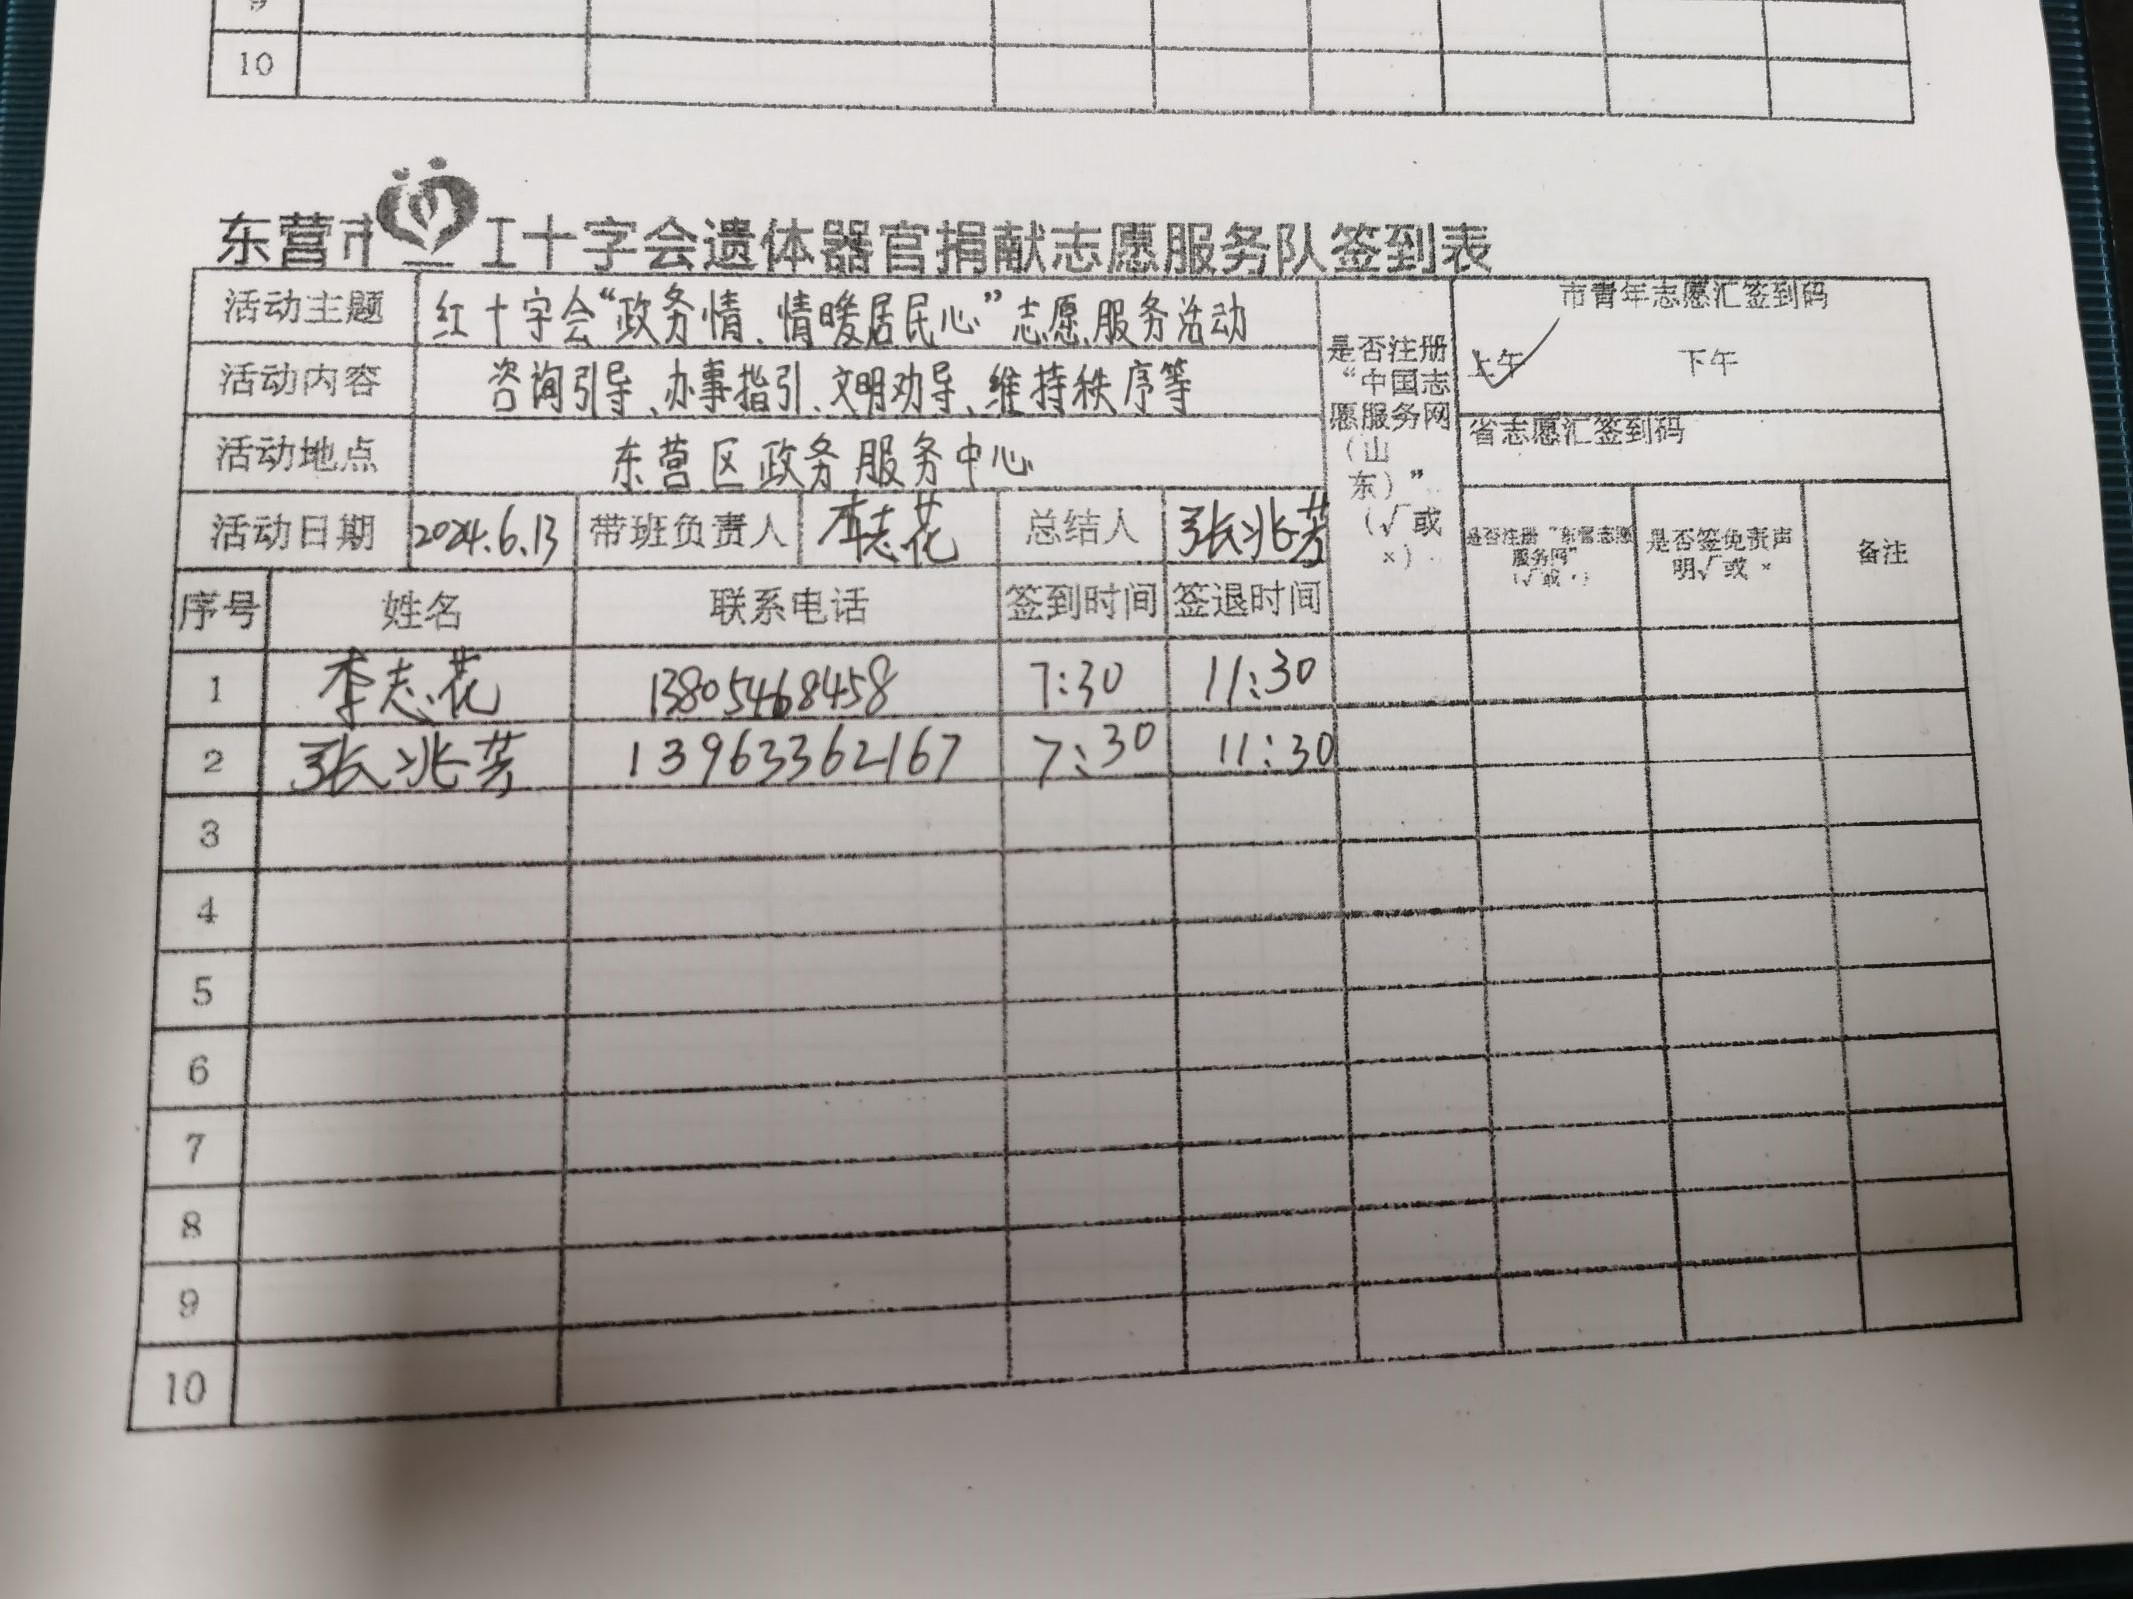 9
10
东营市红十字会遗体器官捐献志愿服务队签到表
活动主题 红十字会“政务情、情暖居民心”志愿服务活动
是否注册“中国志愿服务网(山东)”(√或×)
市青年志愿汇签到码
上午 ✓ 下午
活动内容 咨询引导、办事指引、文明劝导、维持秩序等
省志愿汇签到码
活动地点 东营区政务服务中心
活动日期 2024.6.13 带班负责人 李志花 总结人 张兆芳
是否注册“东营志愿服务网”(√或×) 是否签免责声明√或× 备注
序号 姓名 联系电话 签到时间 签退时间
1 李志花 13805468458 7:30 11:30
2 张兆芳 13963362167 7:30 11:30
3
4
5
6
7
8
9
10